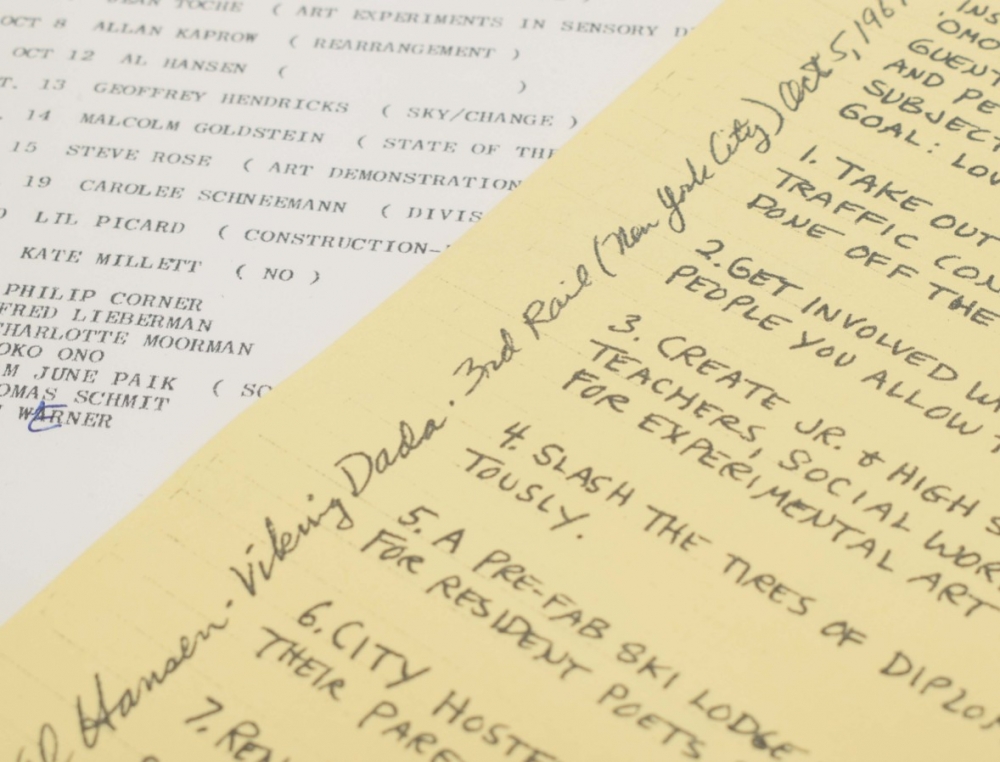 TOCHE ( ART EXPERIMENTS IN SENSORY D
OCT 8 ALLAN KAPROW ( REARRANGEMENT )
OCT 12 AL HANSEN ( )
T. 13 GEOFFREY HENDRICKS ( SKY/CHANGE )
. 14 MALCOLM GOLDSTEIN ( STATE OF THE
15 STEVE ROSE ( ART DEMONSTRATION
19 CAROLEE SCHNEEMANN ( DIVIS
LIL PICARD ( CONSTRUCTION-
KATE MILLETT ( NO )
PHILIP CORNER
FRED LIEBERMAN
CHARLOTTE MOORMAN
OKO ONO
M JUNE PAIK ( SO
OMAS SCHMIT
WARNER
Al Hansen - Viking Dada. 3rd Rail (New York City) Oct 5, 196
INS
OMO
GUENT
AND PE
SUBJECT
GOAL: LOV
1. TAKE OUT
TRAFFIC CON
DONE OFF THE
2. GET INVOLVED WI
PEOPLE YOU ALLOW T
3. CREATE JR. & HIGH S
TEACHERS, SOCIAL WOR
FOR EXPERIMENTAL ART
4. SLASH THE TIRES OF DIPLO
TOUSLY.
5. A PRE-FAB SKI LODGE
FOR RESIDENT POETS
6. CITY HOSTE
THEIR PARE
7. REN